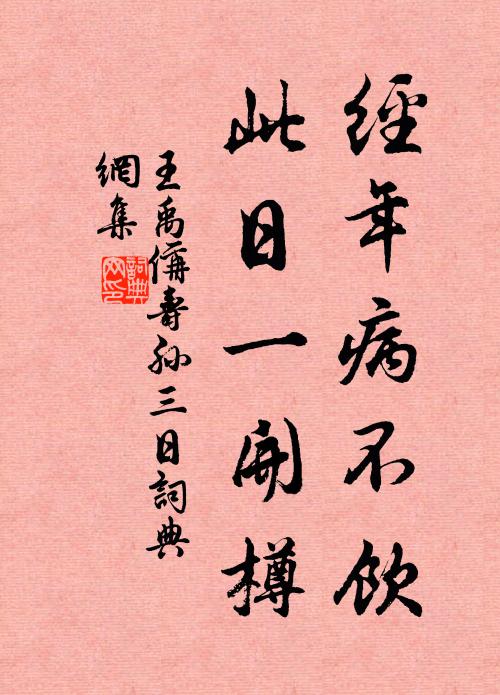 經年病不飲
此日一開樽
王禹偁壽孫三日詞典
網集
詞典網印